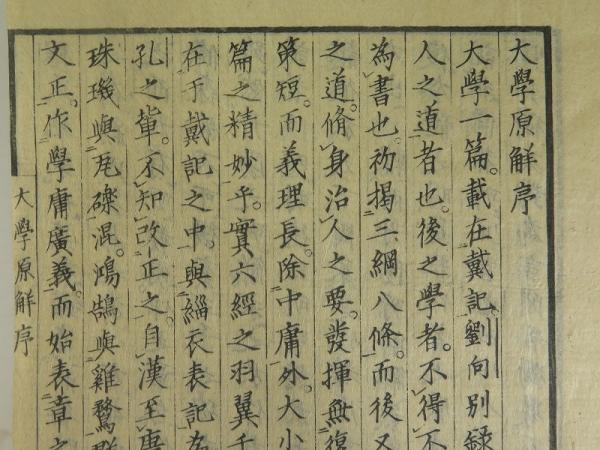 大學原解序
大學一篇。載在戴記。劉向別錄
人之道者也。後之學者。不得不
為書也。初揭三綱八條。而後又
之道。脩身治人之要。發揮無復
策短。而義理長。除中庸外。大小
篇之精妙乎。實六經之羽翼
在于戴記之中。與緇衣表記為
孔之輩。不知改正之。自漢至唐
珠璣與瓦礫混。鴻鵠與雞鶩
文正。作學庸廣義。而始表章之
大學原解序